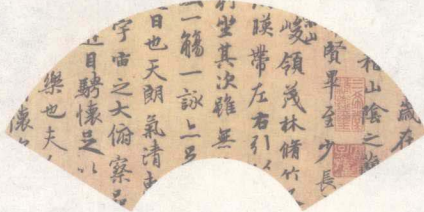 歲在
山陰之蘭
賢畢至少長
峻領茂林脩竹
暎帶左右引以
坐其次雖無
一觴一詠亦足
日也天朗氣清
宇宙之大俯察品
目騁懷足以
樂也夫
懷